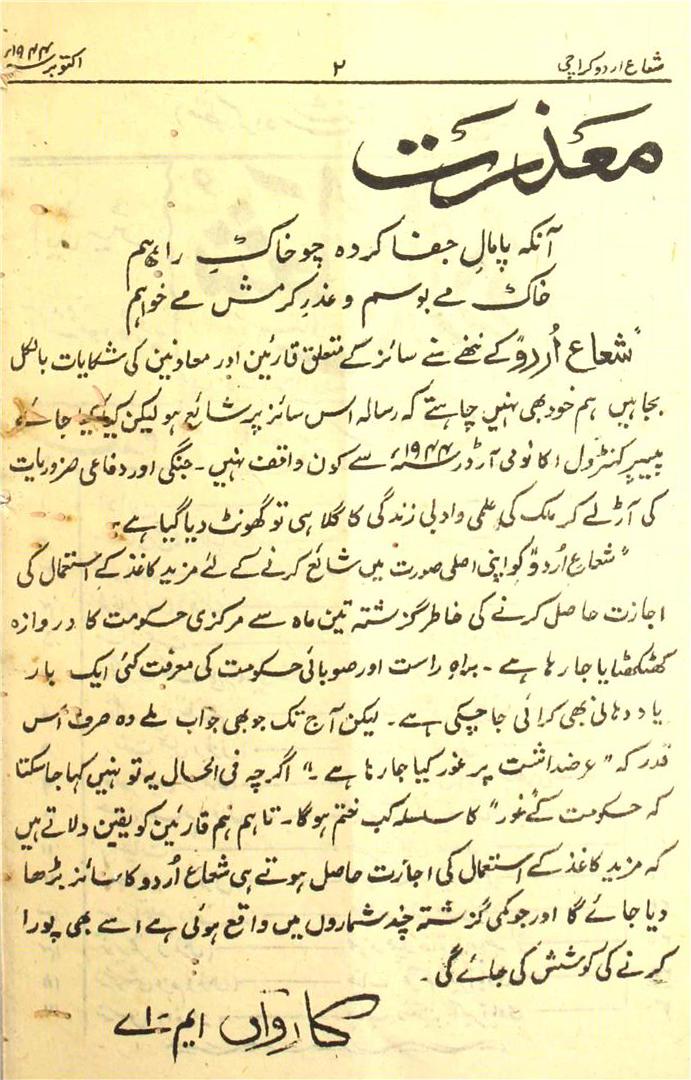 شعاع اردو کراچی
۲
اکتوبر ۱۹۴۴ء
معذرت
آنکہ پامالِ جفا کردہ چو خاکِ راہم
خاک مے بوسم و عذرِ کرمش مے خواہم
"شعاع اُردو" کے ننھے منے سائز کے متعلق قارئین اور معاونین کی شکایات بالکل
بجا ہیں ہم خود بھی نہیں چاہتے کہ رسالہ اس سائز پر شائع ہو لیکن کیا کیا جائے،
پیپر کنٹرول اکانومی آرڈر ۱۹۴۴ء سے کون واقف نہیں۔ جنگی اور دفاعی ضروریات
کی آڑ لے کر ملک کی علمی و ادبی زندگی کا گلا ہی تو گھونٹ دیا گیا ہے۔
"شعاع اُردو" کو اپنی اصلی صورت میں شائع کرنے کے لئے مزید کاغذ کے استعمال کی
اجازت حاصل کرنے کی خاطر گزشتہ تین ماہ سے مرکزی حکومت کا دروازہ
کھٹکھٹایا جا رہا ہے۔ براہِ راست اور صوبائی حکومت کی معرفت کئی ایک بار
یاد دہانی بھی کرائی جا چکی ہے۔ لیکن آج تک جو بھی جواب ملے وہ صرف اُس
قدر کہ "عرضداشت پر غور کیا جا رہا ہے۔" اگرچہ فی الحال یہ تو نہیں کہا جا سکتا
کہ حکومت کے "غور" کا سلسلہ کب ختم ہوگا۔ تاہم ہم قارئین کو یقین دلاتے ہیں
کہ مزید کاغذ کے استعمال کی اجازت حاصل ہوتے ہی شعاع اُردو کا سائز بڑھا
دیا جائے گا اور جو کمی گزشتہ چند شماروں میں واقع ہوئی ہے اسے بھی پورا
کرنے کی کوشش کی جائے گی۔
کارواں ایم۔ اے